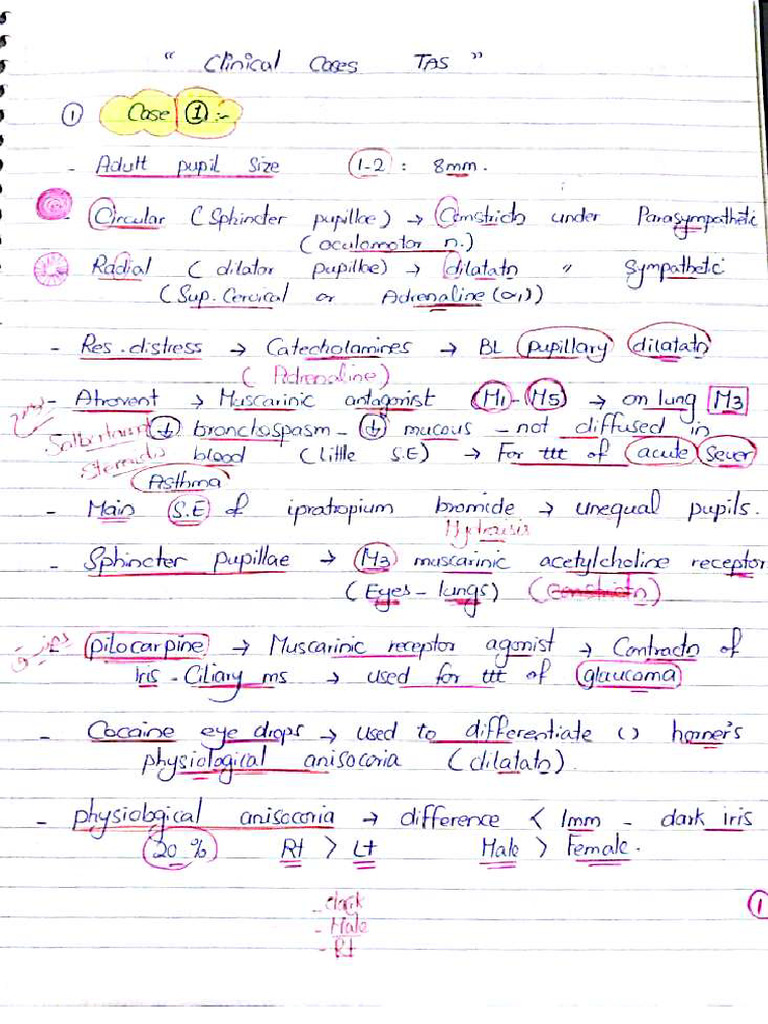 " Clinical Cases TAS "
① Case ① :-
- Adult pupil size 1-2 : 8mm.
- Circular ( Sphincter pupillae) → Constrictn under Parasympathetic
( oculomotor n.)
- Radial ( dilator pupillae) → dilatatn " Sympathetic
( Sup. Cervical or Adrenaline (α1))
- Res. distress → Catecholamines → BL pupillary dilatatn
( Adrenaline)
- Atrovent → Muscarinic antagonist M1 - M5 → on lung M3
Salbutamol ↓ bronchospasm - ↓ mucous - not diffused in
Steroids blood ( little S.E) → For ttt of acute Sever
Asthma
- Main S.E of ipratropium bromide → unequal pupils.
- Sphincter pupillae → M3 muscarinic acetylcholine receptor
( Eyes - lungs) (constrictn)
- pilocarpine → Muscarinic receptor agonist → Contractn of
Iris - Ciliary ms → used for ttt of glaucoma
- Cocaine eye drops → used to differentiate () horner's
physiological anisocoria ( dilatatn).
- physiological anisocoria → difference < 1mm - dark iris
20 % Rt > Lt Male > Female.
- dark
- Male
- Rt
1